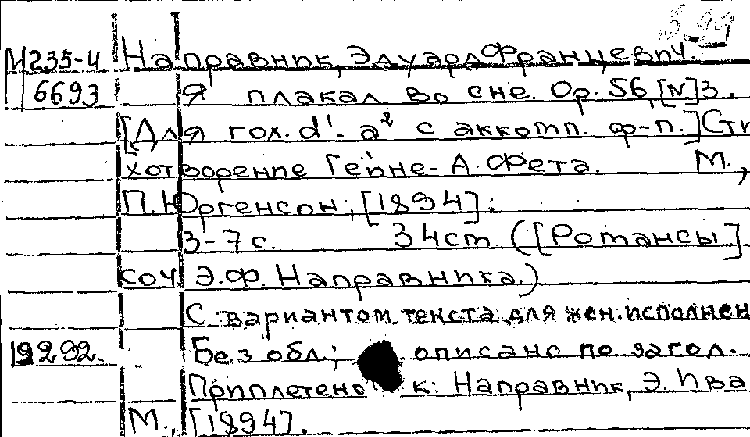 М235-4 Направник, Эдуард Францевич.
6693 Я плакал во сне. Op. 56, [N] 3.
[Для гол. d¹-a² с аккомп. ф-п.] Сти
хотворение Гейне-А. Фета. М.,
П. Юргенсон, [1894].
3-7 с. 34 cm ([Романсы]
соч Э.Ф. Направника.)
С вариантом текста для жен. исполнен
Без обл; описано по загол.
Приплетено к: Направник, Э. Ива
М., [1894].